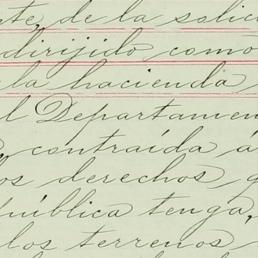 te, de la solici
dirijido como
la hacienda
l Departamen
contraída á
os derechos q
pública tenga,
los terrenos